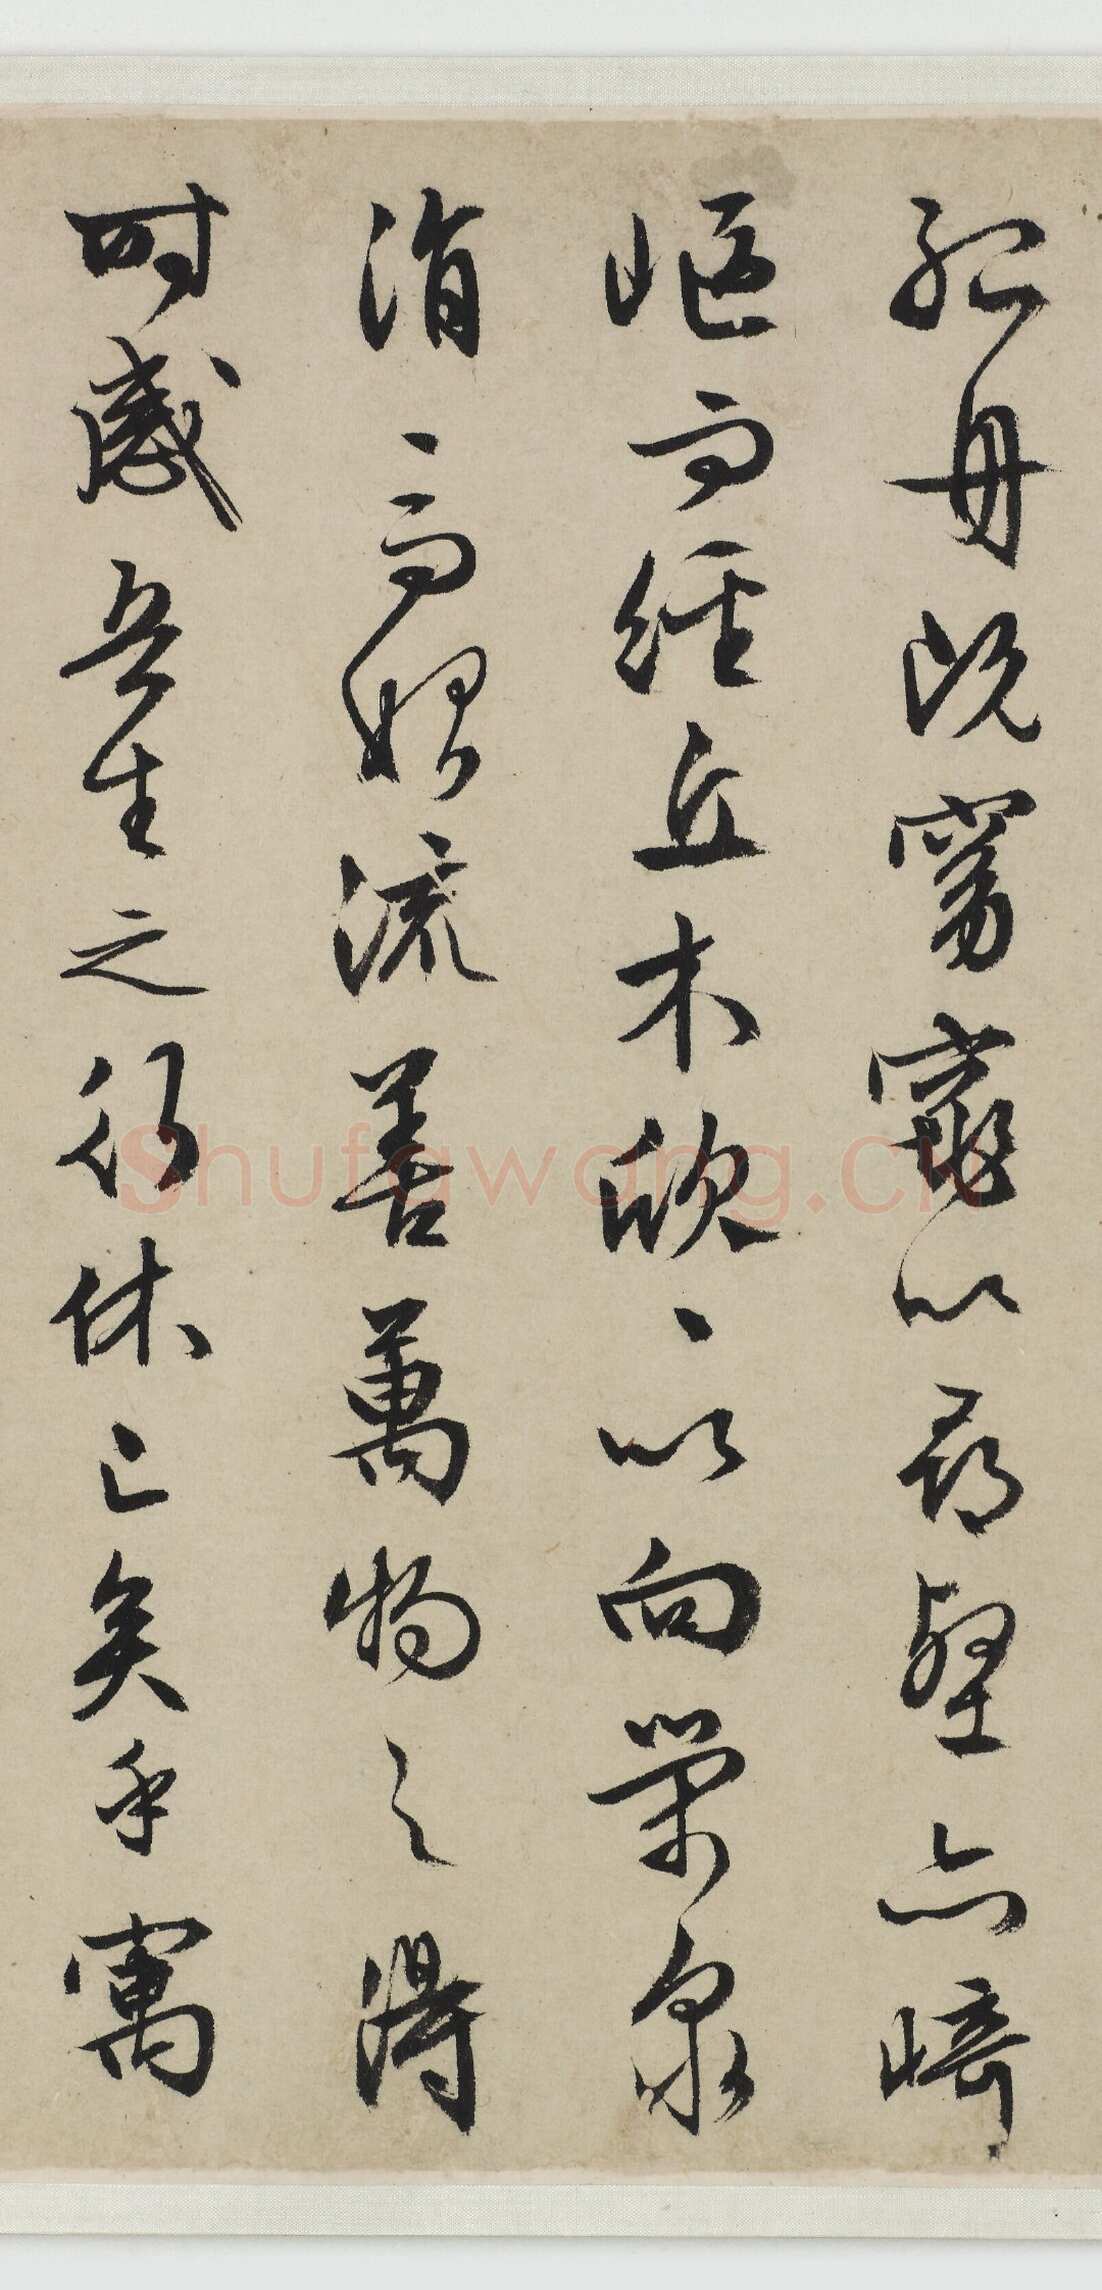 孤舟既窈窕以尋壑亦崎
嶇而經丘木欣、以向榮泉
涓、而始流善萬物之得
時感吾生之行休已矣乎寓
Shufawang.cn